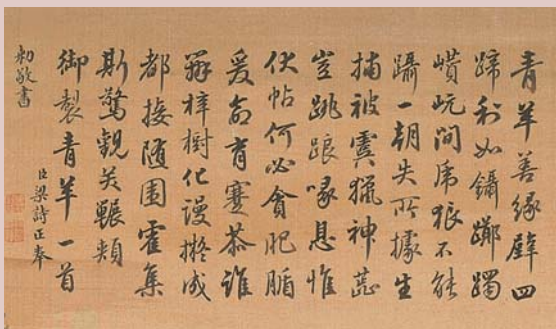 青羊善緣壁四
蹄利如鑷躑躅
巑岏間虎狼不能
躡一朝失所據生
捕被虞獵神
豈跳踉喙息惟
伏帖何必貪肥腯
爰命育蹇恭誰
梓樹化謾擬成
都接随围霍集
斯驚覩笑輾頰
御製青羊一首
臣梁詩正奉
勅敬書